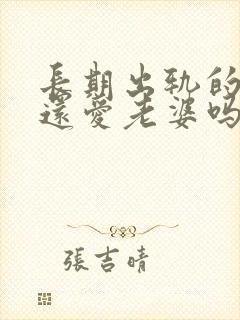 長期出轨的
還愛老婆吗
張吉晴